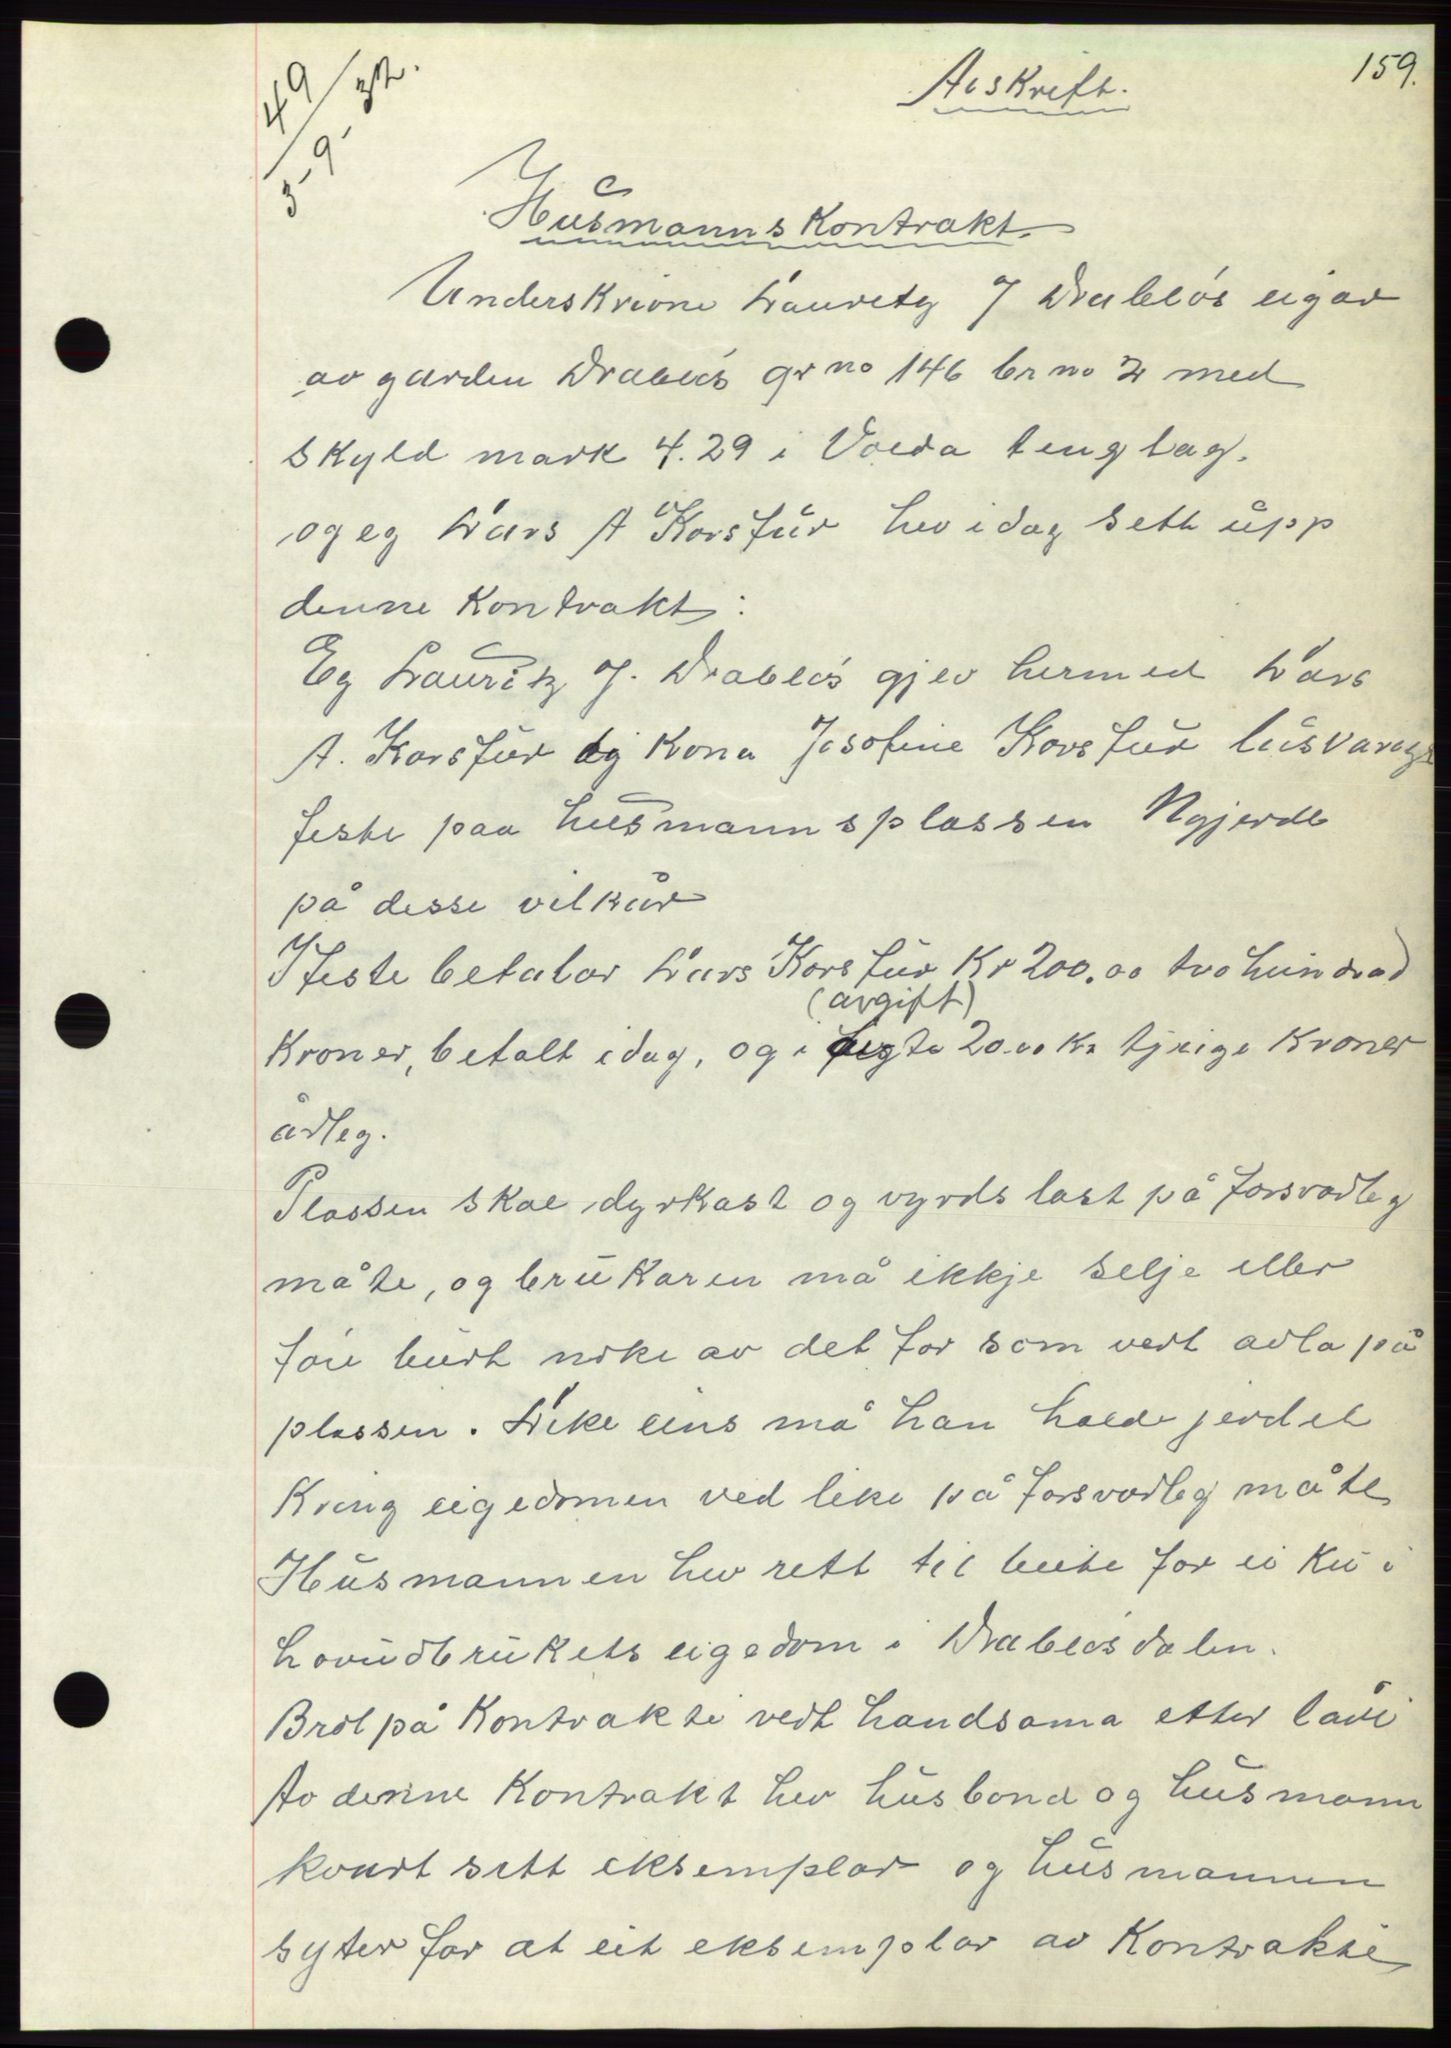 159.
49/3-9-32.
Avskrift.
Husmannskontrakt.
Underskrivne Lauritz J Drabløs eigar
av garden Drabløs gr no 146 br no 2 med
skyld mark 4.29 i Volda tinglag.
og eg Lars A Korsfur hev idag sett upp
denne Kontrakt:
Eg Lauritz J. Drabløs gjev hermed Lars
A. Korsfur og Kona Josofine Korsfur livsvarig
feste paa husmannsplassen Nygjerde
på desse vilkår
I feste betalar Lars Korsfur Kr 200.00 tvo hundrad
(avgift)
Kroner, betalt idag, og i 20.00 Kr tjuige Kroner
årleg.
Plassen skal dyrkast og vyrdslast på forsvarleg
måte, og brukaren må ikkje selje eller
føre burt noke av det for som vert avla på
plassen. Like eins må han halde jerdet
Kring eigedomen ved like på forsvarleg måte
Husmannen hev rett til beite for ei Ku i
hovudbrukets eigedom i Drabløsdalen.
Brot på Kontrakte vert handsama etter lovi
Av denne Kontrakt hev husbond og husmann
kvart sitt eksemplar og husmannen
syter for at eit eksemplar av Kontrakte